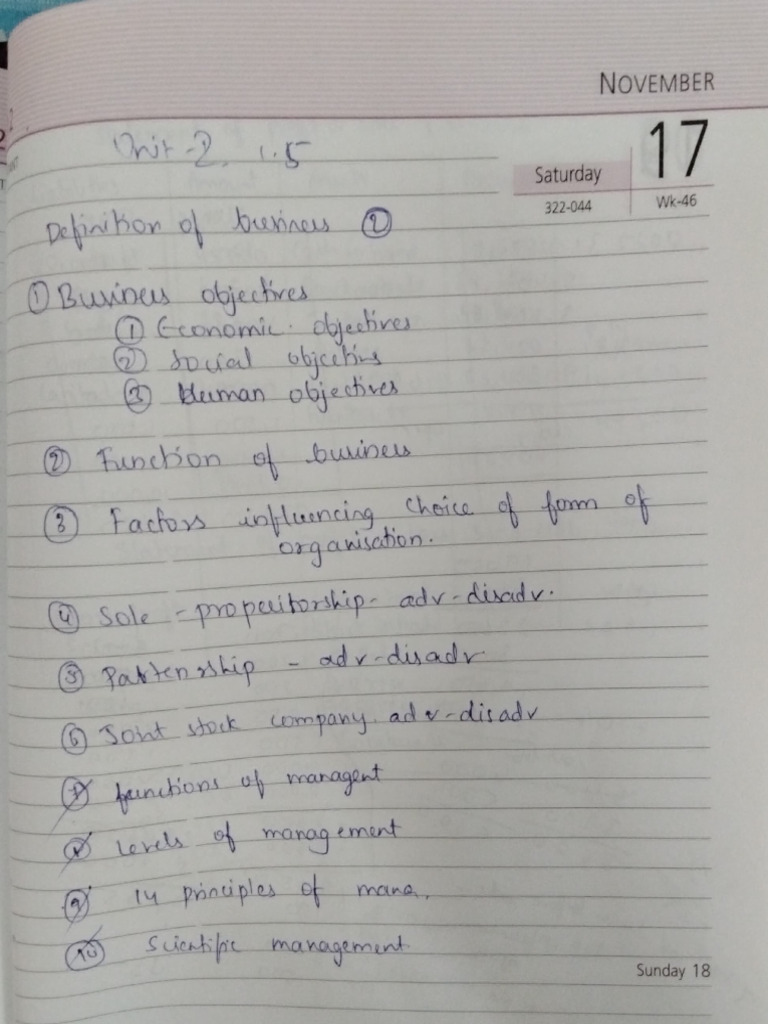 NOVEMBER
Unit-2. 1.5
Saturday
17
322-044
Wk-46
Definition of business ②
① Business objectives
① Economic objectives
② Social objectives
③ Human objectives
② Function of business
③ Factors influencing choice of form of
organisation.
④ Sole - properitorship - adv-disadv.
⑤ Partenrship - adv-disadv
⑥ Joint stock company adv-disadv
⑦ functions of managent
⑧ levels of management
⑨ 14 principles of mana.
⑩ Scientific management
Sunday 18